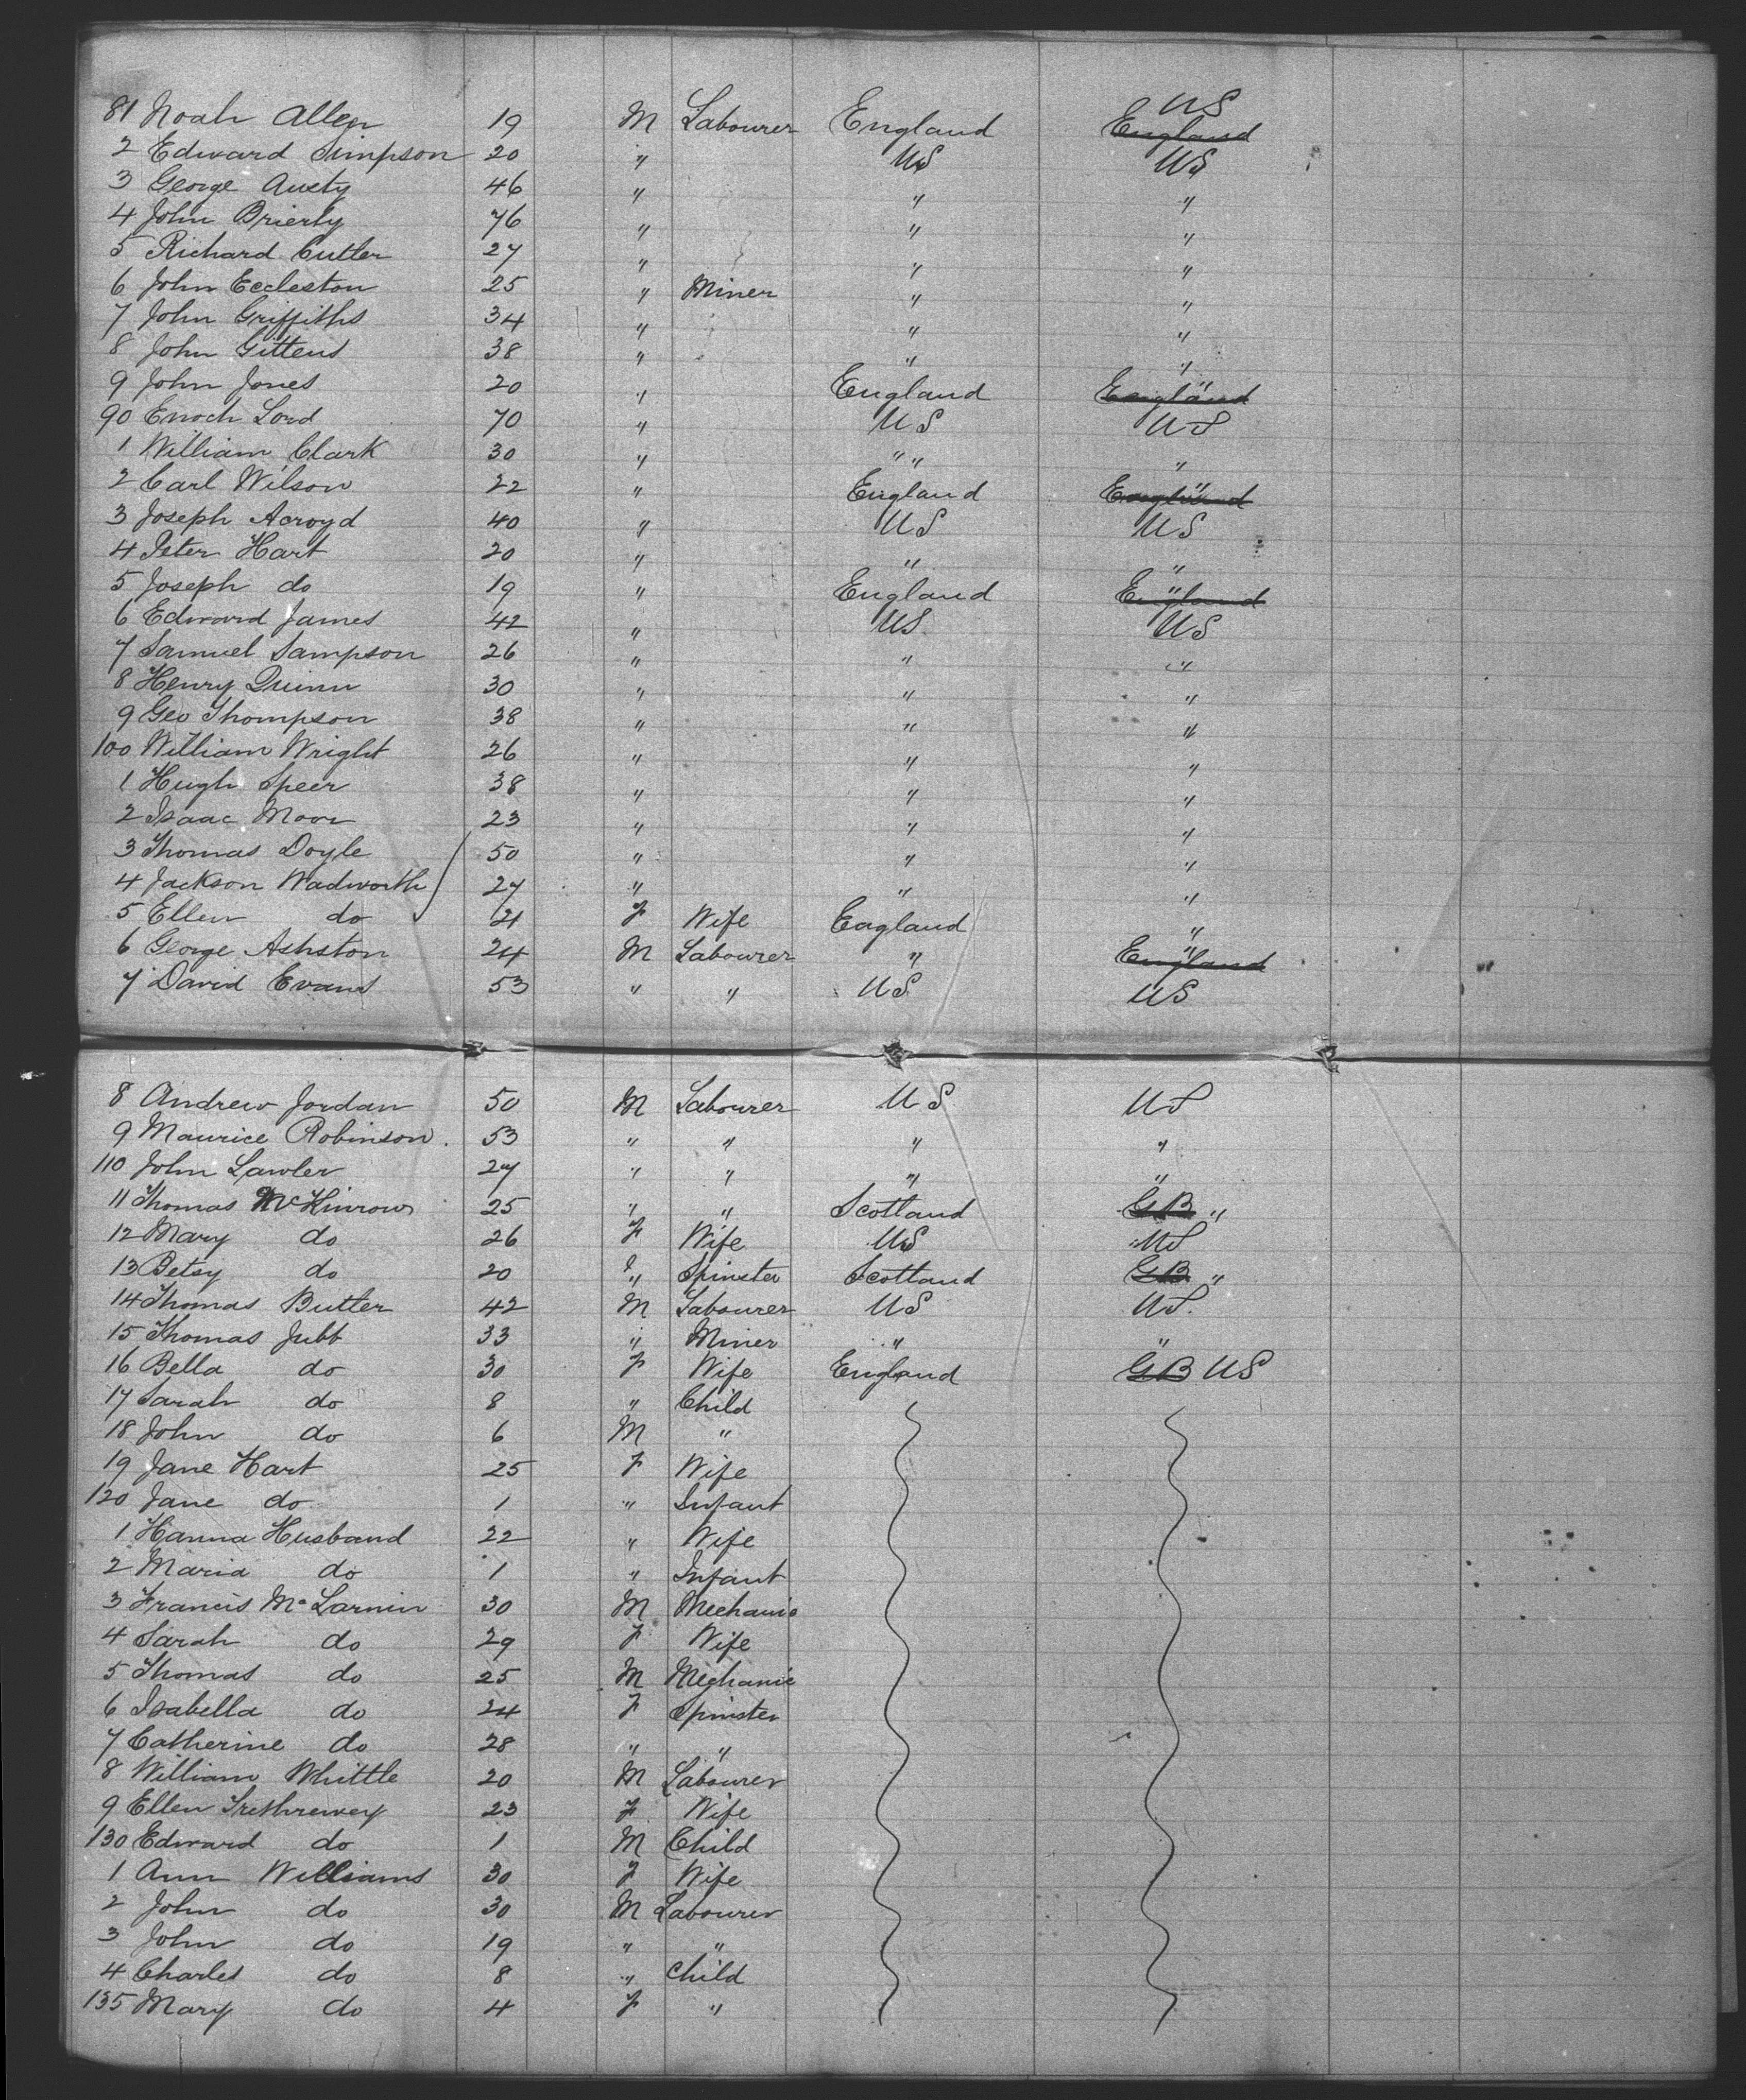 81 Noah Allen 19 M Labourer England US ~~England~~
2 Edward Simpson 20 " US US
3 George Austy 46 " " "
4 John Brierly 76 " " "
5 Richard Cutler 27 " " "
6 John Eccleston 25 " Miner " "
7 John Griffiths 34 " " "
8 John Gittens 38 " " "
9 John Jones 20 " England ~~England~~ "
90 Enoch Lord 70 " US US
1 William Clark 30 " " " "
2 Carl Wilson 22 " England ~~England~~ "
3 Joseph Acroyd 40 " US US
4 Peter Hart 20 " " "
5 Joseph do 19 " England ~~England~~ "
6 Edward James 42 " US US
7 Samuel Sampson 26 " " "
8 Henry Quinn 30 " " "
9 Geo Thompson 38 " " "
100 William Wright 26 " " "
1 Hugh Speer 38 " " "
2 Isaac Moor 23 " " "
3 Thomas Doyle 50 " " "
4 Jackson Wadworth 27 " " "
5 Ellen do 21 F Wife England "
6 George Ashston 24 M Labourer " ~~England~~ "
7 David Evans 53 " " US US
8 Andrew Jordan 50 M Labourer US US
9 Maurice Robinson 53 " " " "
110 John Lawler 27 " " " "
11 Thomas McKinrow 25 " " Scotland ~~GB~~ "
12 Mary do 26 F Wife US US
13 Betsy do 20 " Spinster Scotland ~~GB~~ "
14 Thomas Butler 42 M Labourer US US.
15 Thomas Jubb 33 " Miner " "
16 Bella do 30 F Wife England ~~GB~~ US
17 Sarah do 8 " Child
18 John do 6 M "
19 Jane Hart 25 F Wife
120 Jane do 1 " Infant
1 Hanna Husband 22 " Wife
2 Maria do 1 " Infant
3 Francis McLarnin 30 M Mechanic
4 Sarah do 29 F Wife
5 Thomas do 25 M Mechanic
6 Isabella do 24 F Spinster
7 Catherine do 28 " "
8 William Whittle 20 M Labourer
9 Ellen Trethrewey 23 F Wife
130 Edward do 1 M Child
1 Ann Williams 30 F Wife
2 John do 30 M Labourer
3 John do 19 " "
4 Charles do 8 " Child
135 Mary do 4 F "